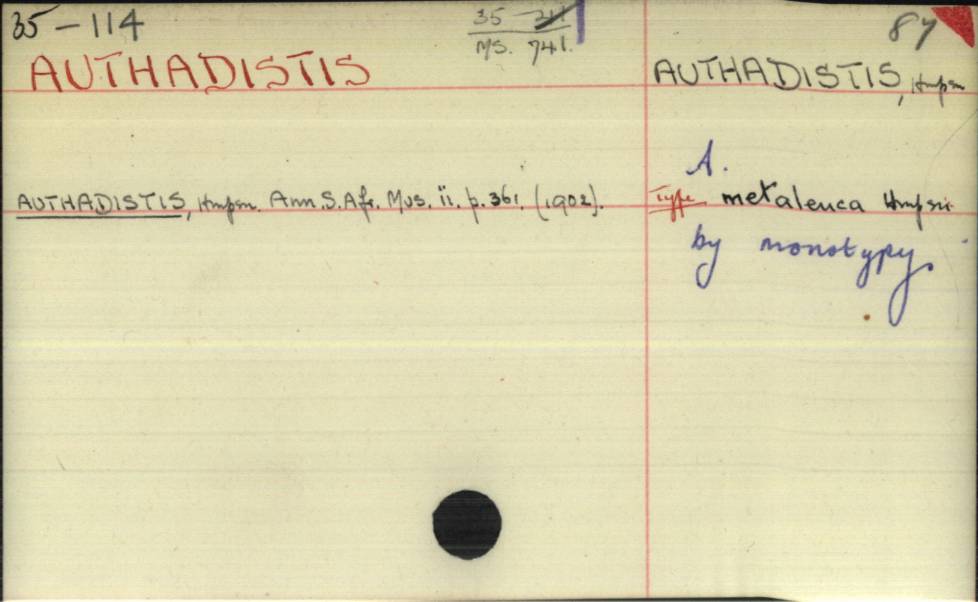 35-114
35
MS. 741.
87
AUTHADISTIS
AUTHADISTIS, Hmpsn
AUTHADISTIS, Hmpsn. Ann. S. Afr. Mus. ii. p. 361 (1902).
A.
Type metaleuca Hmpsn
by monotypy.